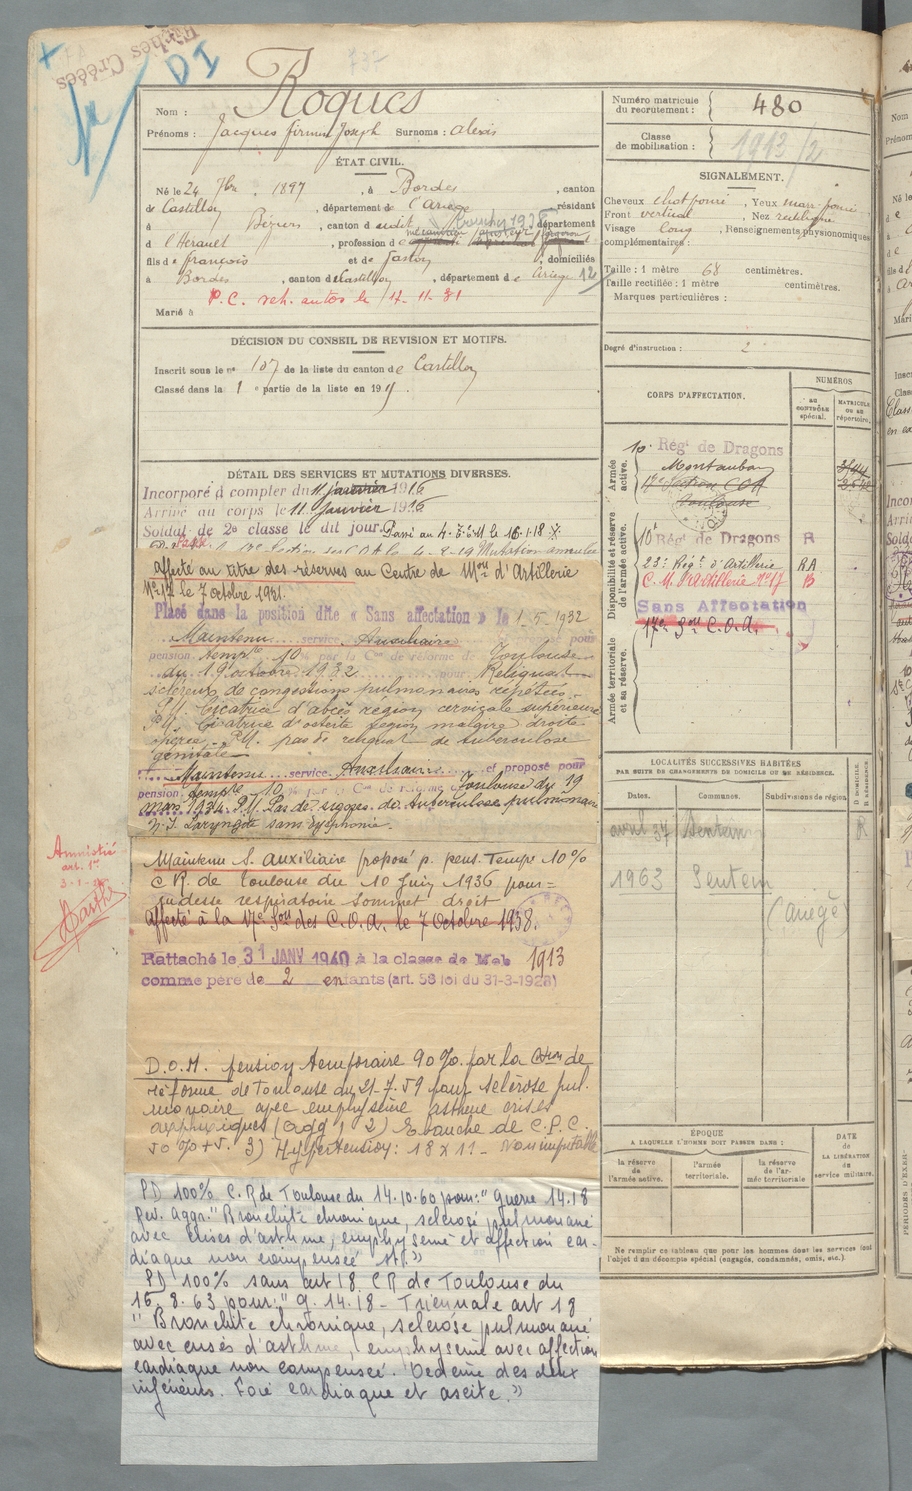 Fiches Créées
DI
737
Nom : Roques
Prénoms : Jacques firmin Joseph Surnoms : alexis
ÉTAT CIVIL.
Né le 24 7bre . 1897 , à Bordes , canton
de Castillon , département de l'Ariège , résidant
à Béziers , canton d dudit , département
d l'Hérault , profession d
fils de françois et de , domiciliés
à Bordes , canton de Castillon , département de Ariège 12
P.C. ret. autos le 17-11-31
Marié à
DÉCISION DU CONSEIL DE REVISION ET MOTIFS.
Inscrit sous le n° 107 de la liste du canton de Castillon
Classé dans la 1e partie de la liste en 191
DÉTAIL DES SERVICES ET MUTATIONS DIVERSES.
Incorporé à compter du 11 janvier 1916
Arrivé au corps le 11 janvier 1916
Soldat de 2e classe le dit jour. Passé au
affecté au titre des réserves au Centre de Mori d'Artillerie
No 17 le 7 octobre 1931.
Placé dans la position dite « Sans affectation » le 1-5-1932
Maintenu service Auxiliaire et proposé pour
pension tempre 10% par la Con de réforme de Toulouse
du 19 octobre 1932 pour Reliquat
scléreux de congestions pulmonaires répétées.
P.M. Cicatrice d'abcès région cervicale supérieure
P.M. Cicatrice d'ostéite région malaire droite
opérée. P.M. pas de reliquat de tuberculose
génitale
Maintenu service Auxiliaire et proposé pour
pension tempre 10% par la Con de réforme de Toulouse du 19
mars 1934. P.M. Pas de signes de tuberculose pulmonaire
N.I. Laryngite sans dysphonie.
Maintenu S. auxiliaire proposé p. pens. Tempre 10%
C.R. de Toulouse du 10 juin 1936 pour=
rudesse respiratoire sommet droit
affecté à la 17e Son des C.O.A. le 7 Octobre 1938.
Rattaché le 31 JANV 1940 à la classe de Mob 1913
comme père de 2 enfants (art. 58 loi du 31-3-1928)
D.O.M. pension temporaire 90% par la Con de
réforme de Toulouse du 21-7-59 pour sclérose pul-
monaire avec emphysème asthme crises
asphyxiques (agg 1 2) Ebauche de C.P.C.
50%+5. 3) Hypertension: 18 x 11 - Non imputable
PD 100% C.R de Toulouse du 14.10.60 pour: "Guerre 14.18
Rev. Aggr. "Bronchite chronique, sclérose pulmonaire
avec crises d'asthme, emphysème et affection car-
diaque non compensée
PD 100% sans art 18 CR de Toulouse du
16.8.63 pour: "g. 14.18 - Triennale art 18
"Bronchite chronique, sclérose pulmonaire
avec crises d'asthme, emphysème avec affection
cardiaque non compensée. Oedème des deux
inférieurs. Foie cardiaque et ascite."
Amnistié
art. 1er
Numéro matricule
du recrutement : 480
Classe
de mobilisation : 1913/2
SIGNALEMENT.
Cheveux chat foncé , Yeux marr foncé
Front vertical , Nez rectiligne
Visage long , Renseignements physionomiques
complémentaires :
Taille : 1 mètre 68 centimètres.
Taille rectifiée : 1 mètre centimètres.
Marques particulières :
Degré d'instruction : 2
CORPS D'AFFECTATION.
NUMÉROS
AU CONTRÔLE spécial.
MATRICULE OU AU répertoire.
Armée active.
10e Régt de Dragons
Montauban
17e Section COA
Toulouse
Disponibilité et réserve de l'armée active.
10e Régt de Dragons R
23e Régt d'Artillerie RA
C. M. d'Artillerie No 17 B
Sans Affectation
17e Son C.O.A.
Armée territoriale et sa réserve.
LOCALITÉS SUCCESSIVES HABITÉES
PAR SUITE DE CHANGEMENTS DE DOMICILE OU DE RÉSIDENCE.
Dates.
Communes.
Subdivisions de région
D. DOMICILE. R. RÉSIDENCE.
avril 37 Sentein R
1963 Sentein
(Ariège)
ÉPOQUE
A LAQUELLE L'HOMME DOIT PASSER DANS :
la réserve de l'armée active.
l'armée territoriale.
la réserve de l'ar-mée territoriale
DATE de LA LIBÉRATION du service militaire.
Ne remplir ce tableau que pour les hommes dont les services font
l'objet d'un décompte spécial (engagés, condamnés, omis, etc.).